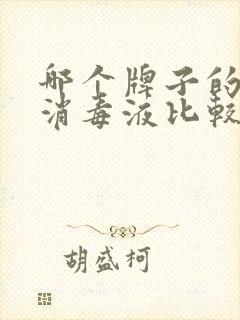 哪个牌子的
消毒液比较
胡盛柯